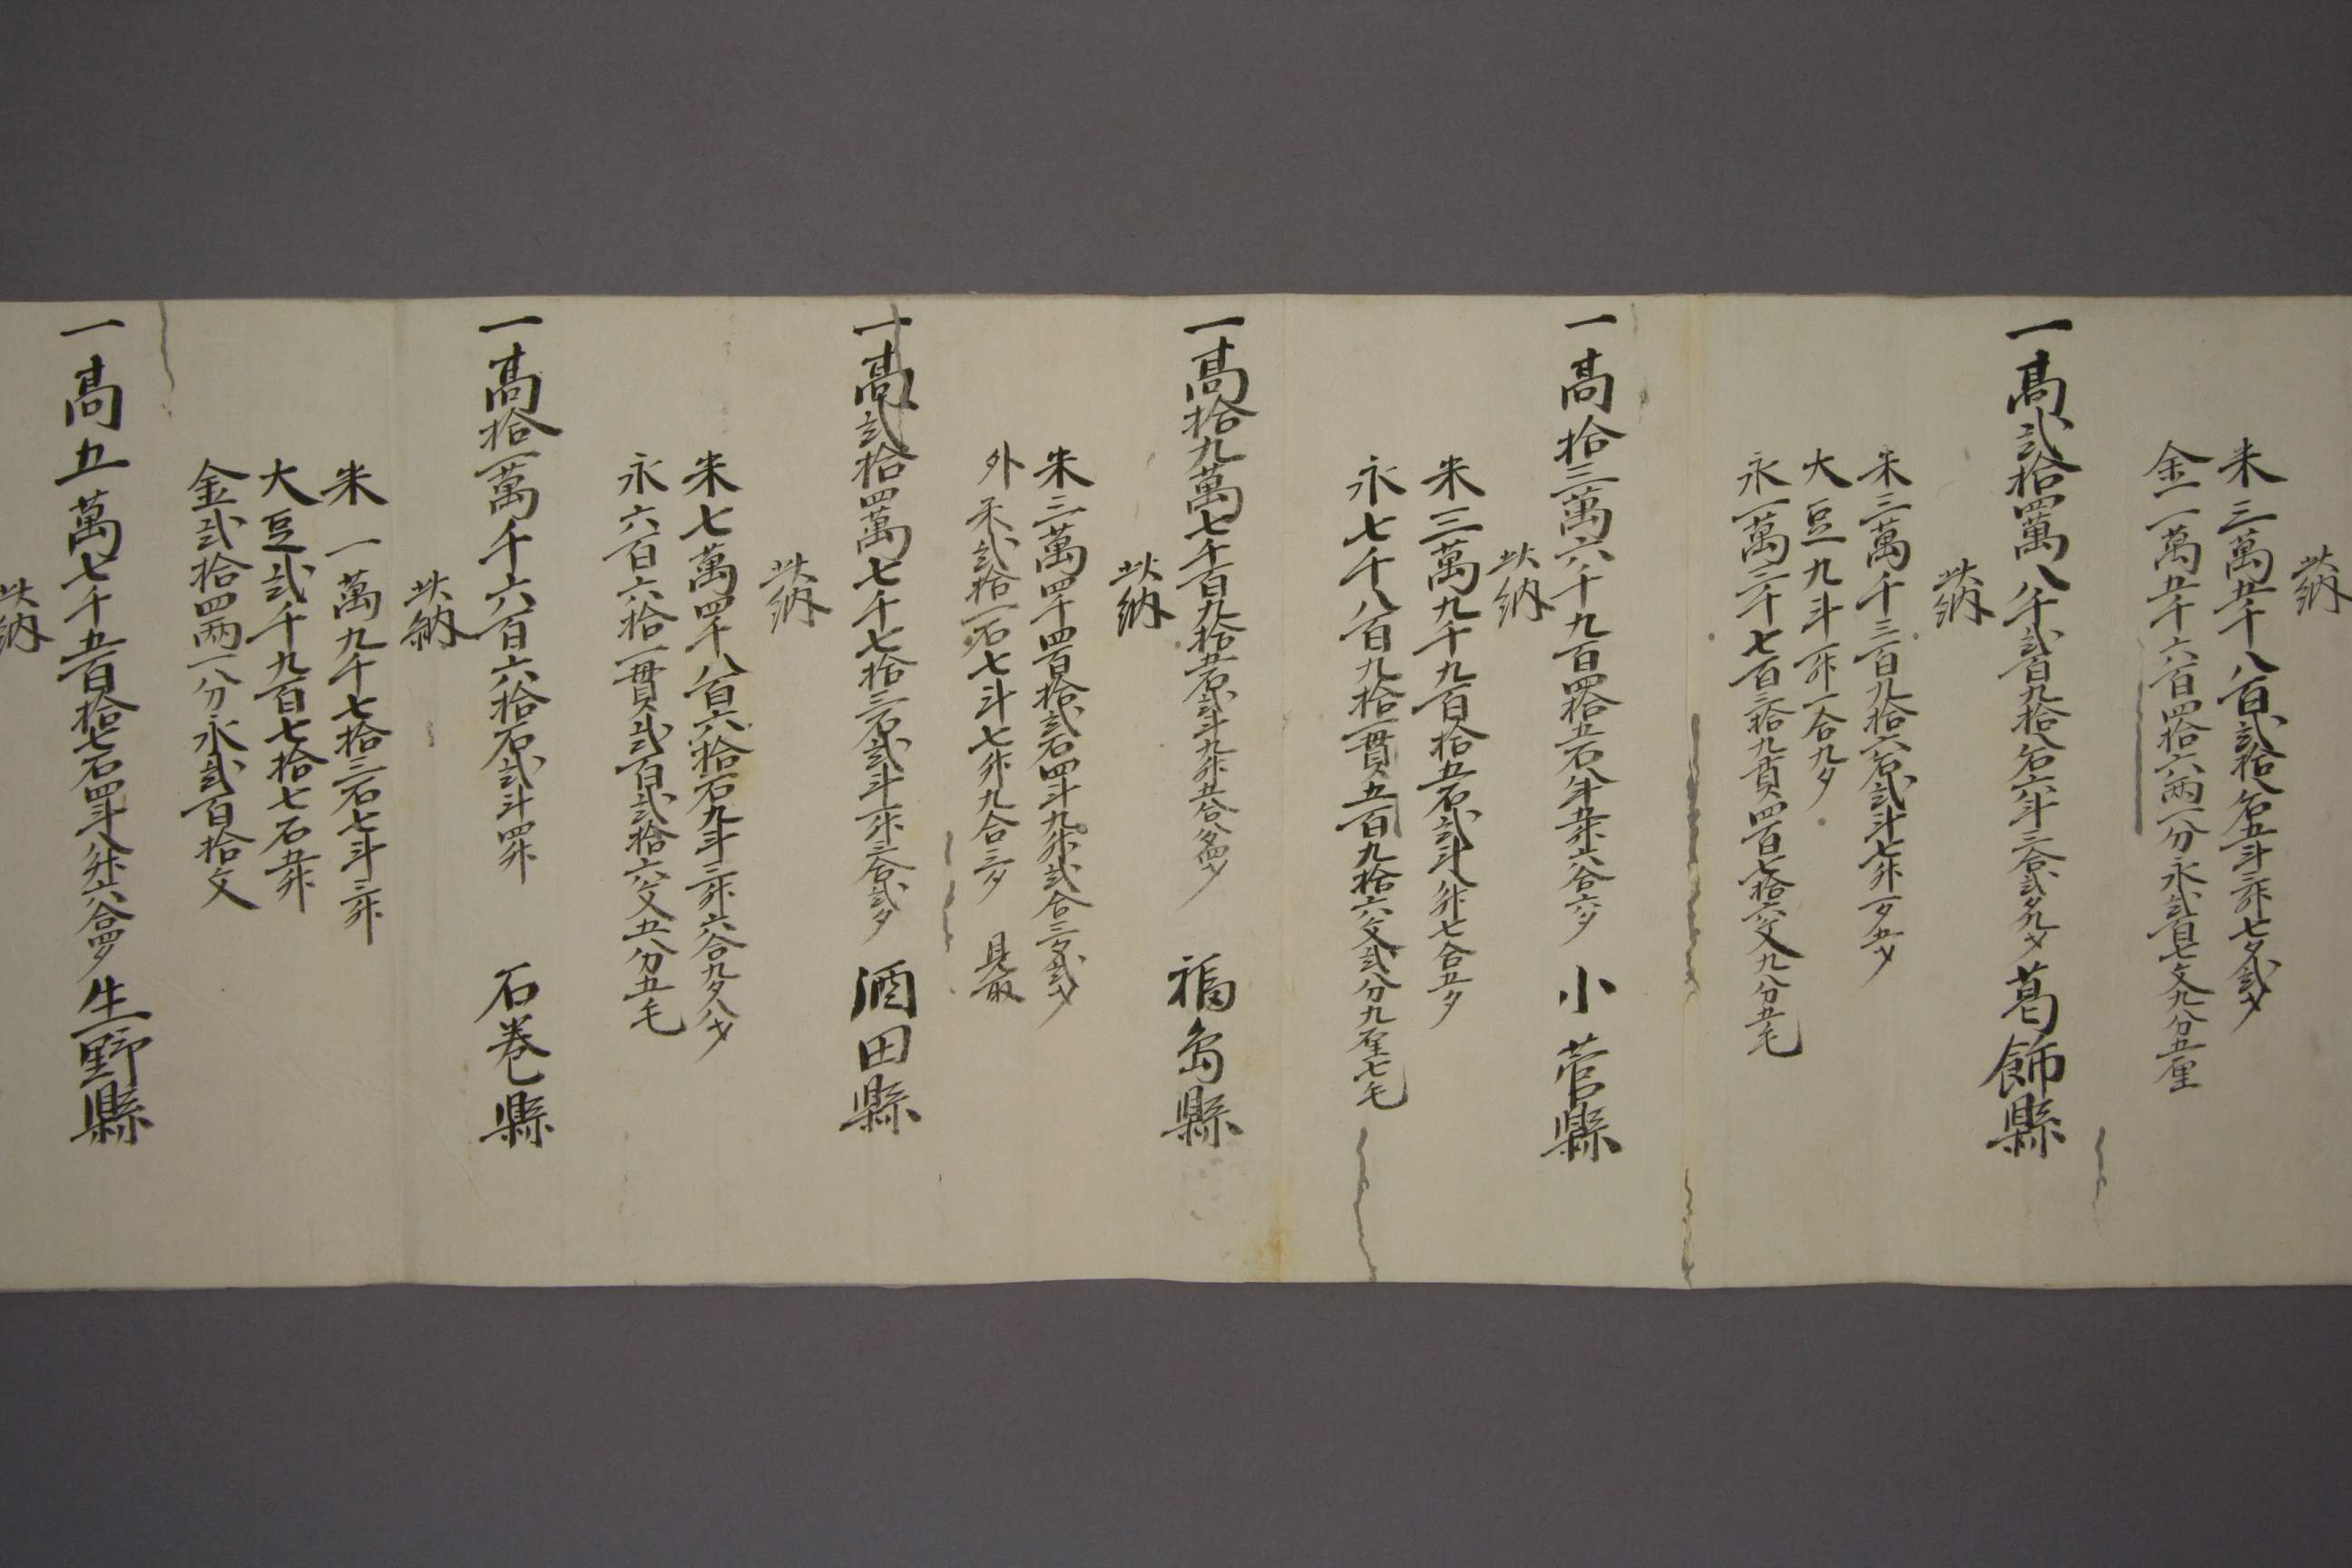 此納
米三萬五千八百弐拾八石五斗三升七夕弐才
金一萬五千六百四拾六両一分永弐百七文九分五厘
一高弐拾四萬八千弐百九拾八石六斗三合弐夕九才葛飾縣
此納
米三萬千三百九拾六石弐斗七升一夕五才
大豆一九斗一升一合九夕
永一萬三千七百三拾九貫四百七拾六文九分五毛
一高拾三萬六千九百四拾五石八斗五升六合六夕 小菅縣
此納
米三萬九千九百拾五石弐斗八升七合五夕
永七千八百九拾一貫五百九拾六文弐分九厘七毛
一高拾九萬七千百九拾五石弐斗九升五合八夕四才 福島縣
此納
米三萬四千四百拾弐石四斗九升弐合三夕弐才
外米弐拾一石七斗七升九合三夕 見取
一高弐拾四萬七千七拾三石弐斗一升三合弐夕 酒田縣
此納
米七萬四千八百六拾石九斗三升六合九夕八才
永六百六拾一貫弐百弐拾六文五分五毛
一高拾一萬千六百六拾石弐斗四升 石巻縣
此納
米一萬九千七拾三石七斗三升
大豆弐千九百七拾七石五升
金弐拾四両一分永弐百拾文
一高五萬七千五百拾七石四斗八升六合四夕 生野縣
此納